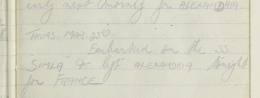 early next morning for ALEXANDRIA
THURS. MAR. 23rd.
Embarked on the SS
& left ALEXANDRIA tonight
for FRANCE